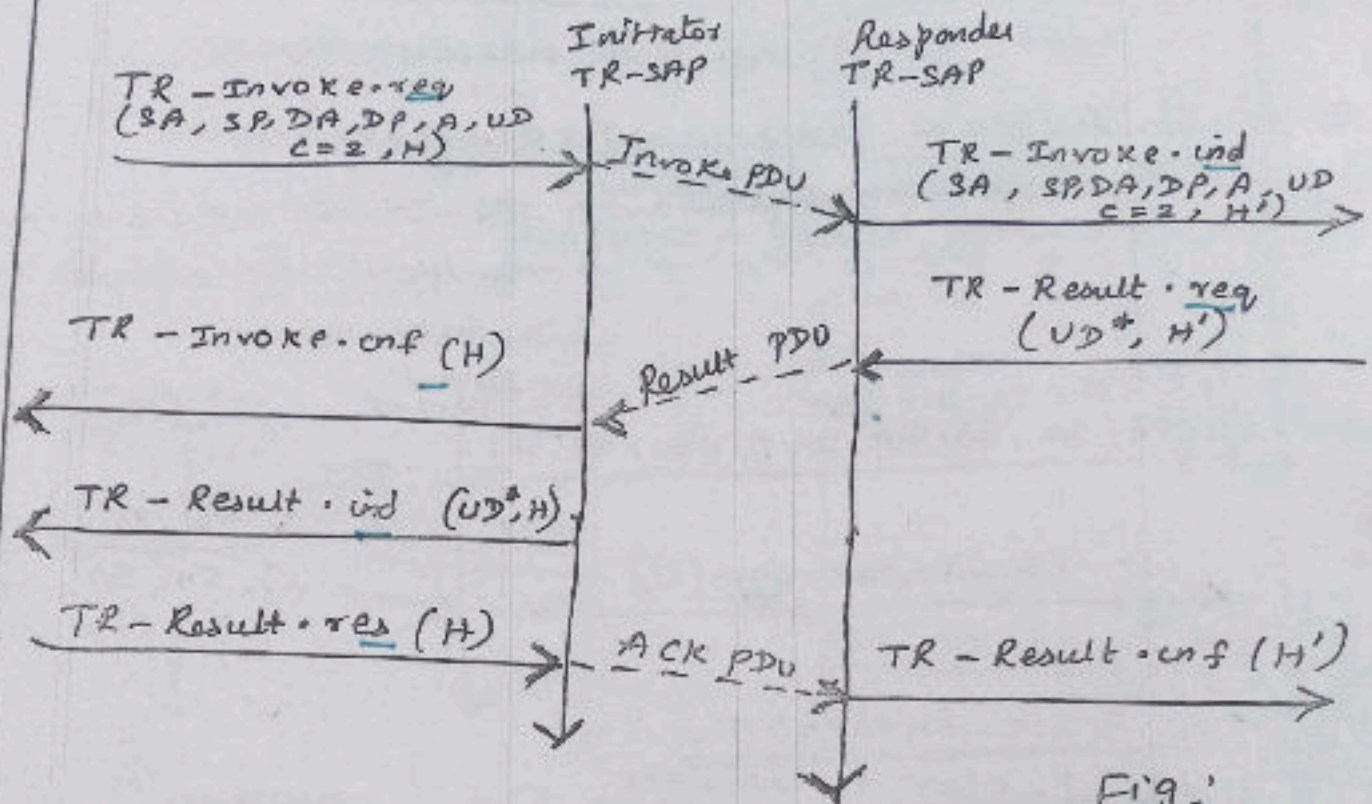 Initiator
TR-SAP
Responder
TR-SAP
TR - Invoke.req
(SA, SP, DA, DP, A, UD
C=2, H)
Invoke PDU
TR - Invoke.ind
(SA, SP, DA, DP, A, UD
C=2, H')
TR - Result.req
(UD*, H')
Result PDU
TR - Invoke.cnf (H)
TR - Result.ind (UD*, H)
TR - Result.res (H)
ACK PDU
TR - Result.cnf (H')
Fig: